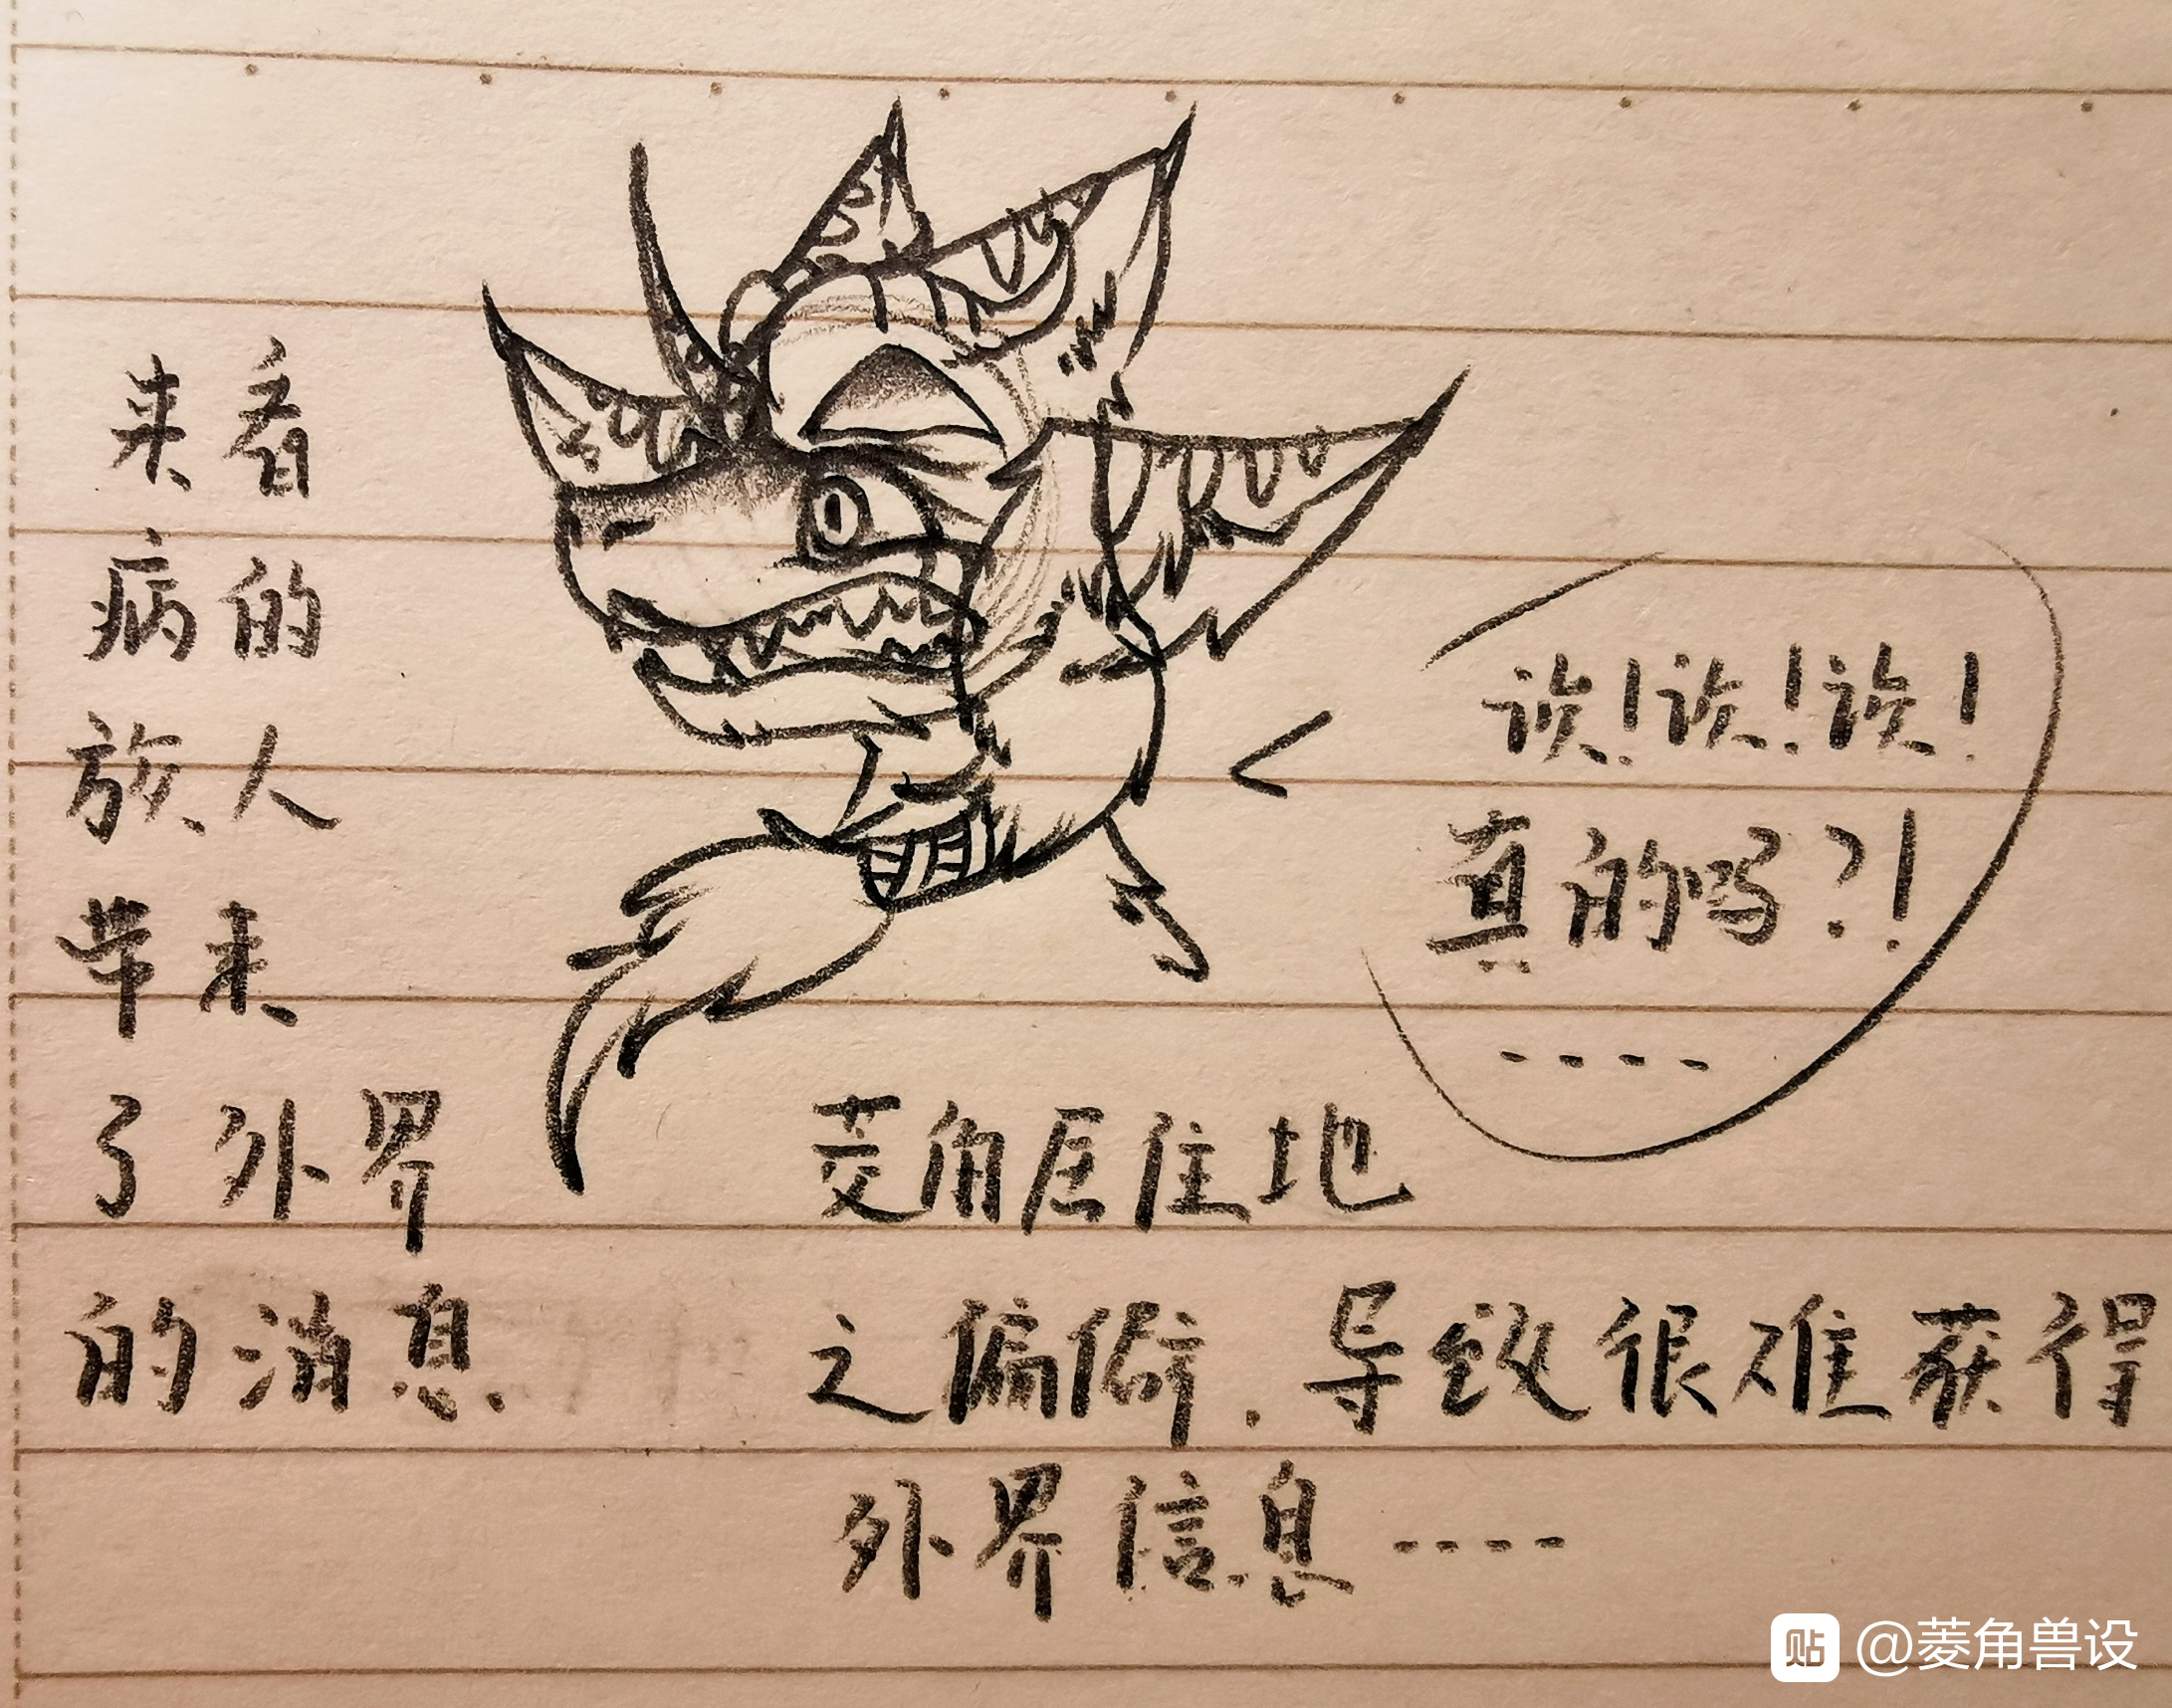 来看
病的
旅人
带来
了外界
的消息.
诶!诶!诶!
真的吗?!
----
菱角居住地
之偏僻.导致很难获得
外界信息----
贴 @菱角兽设